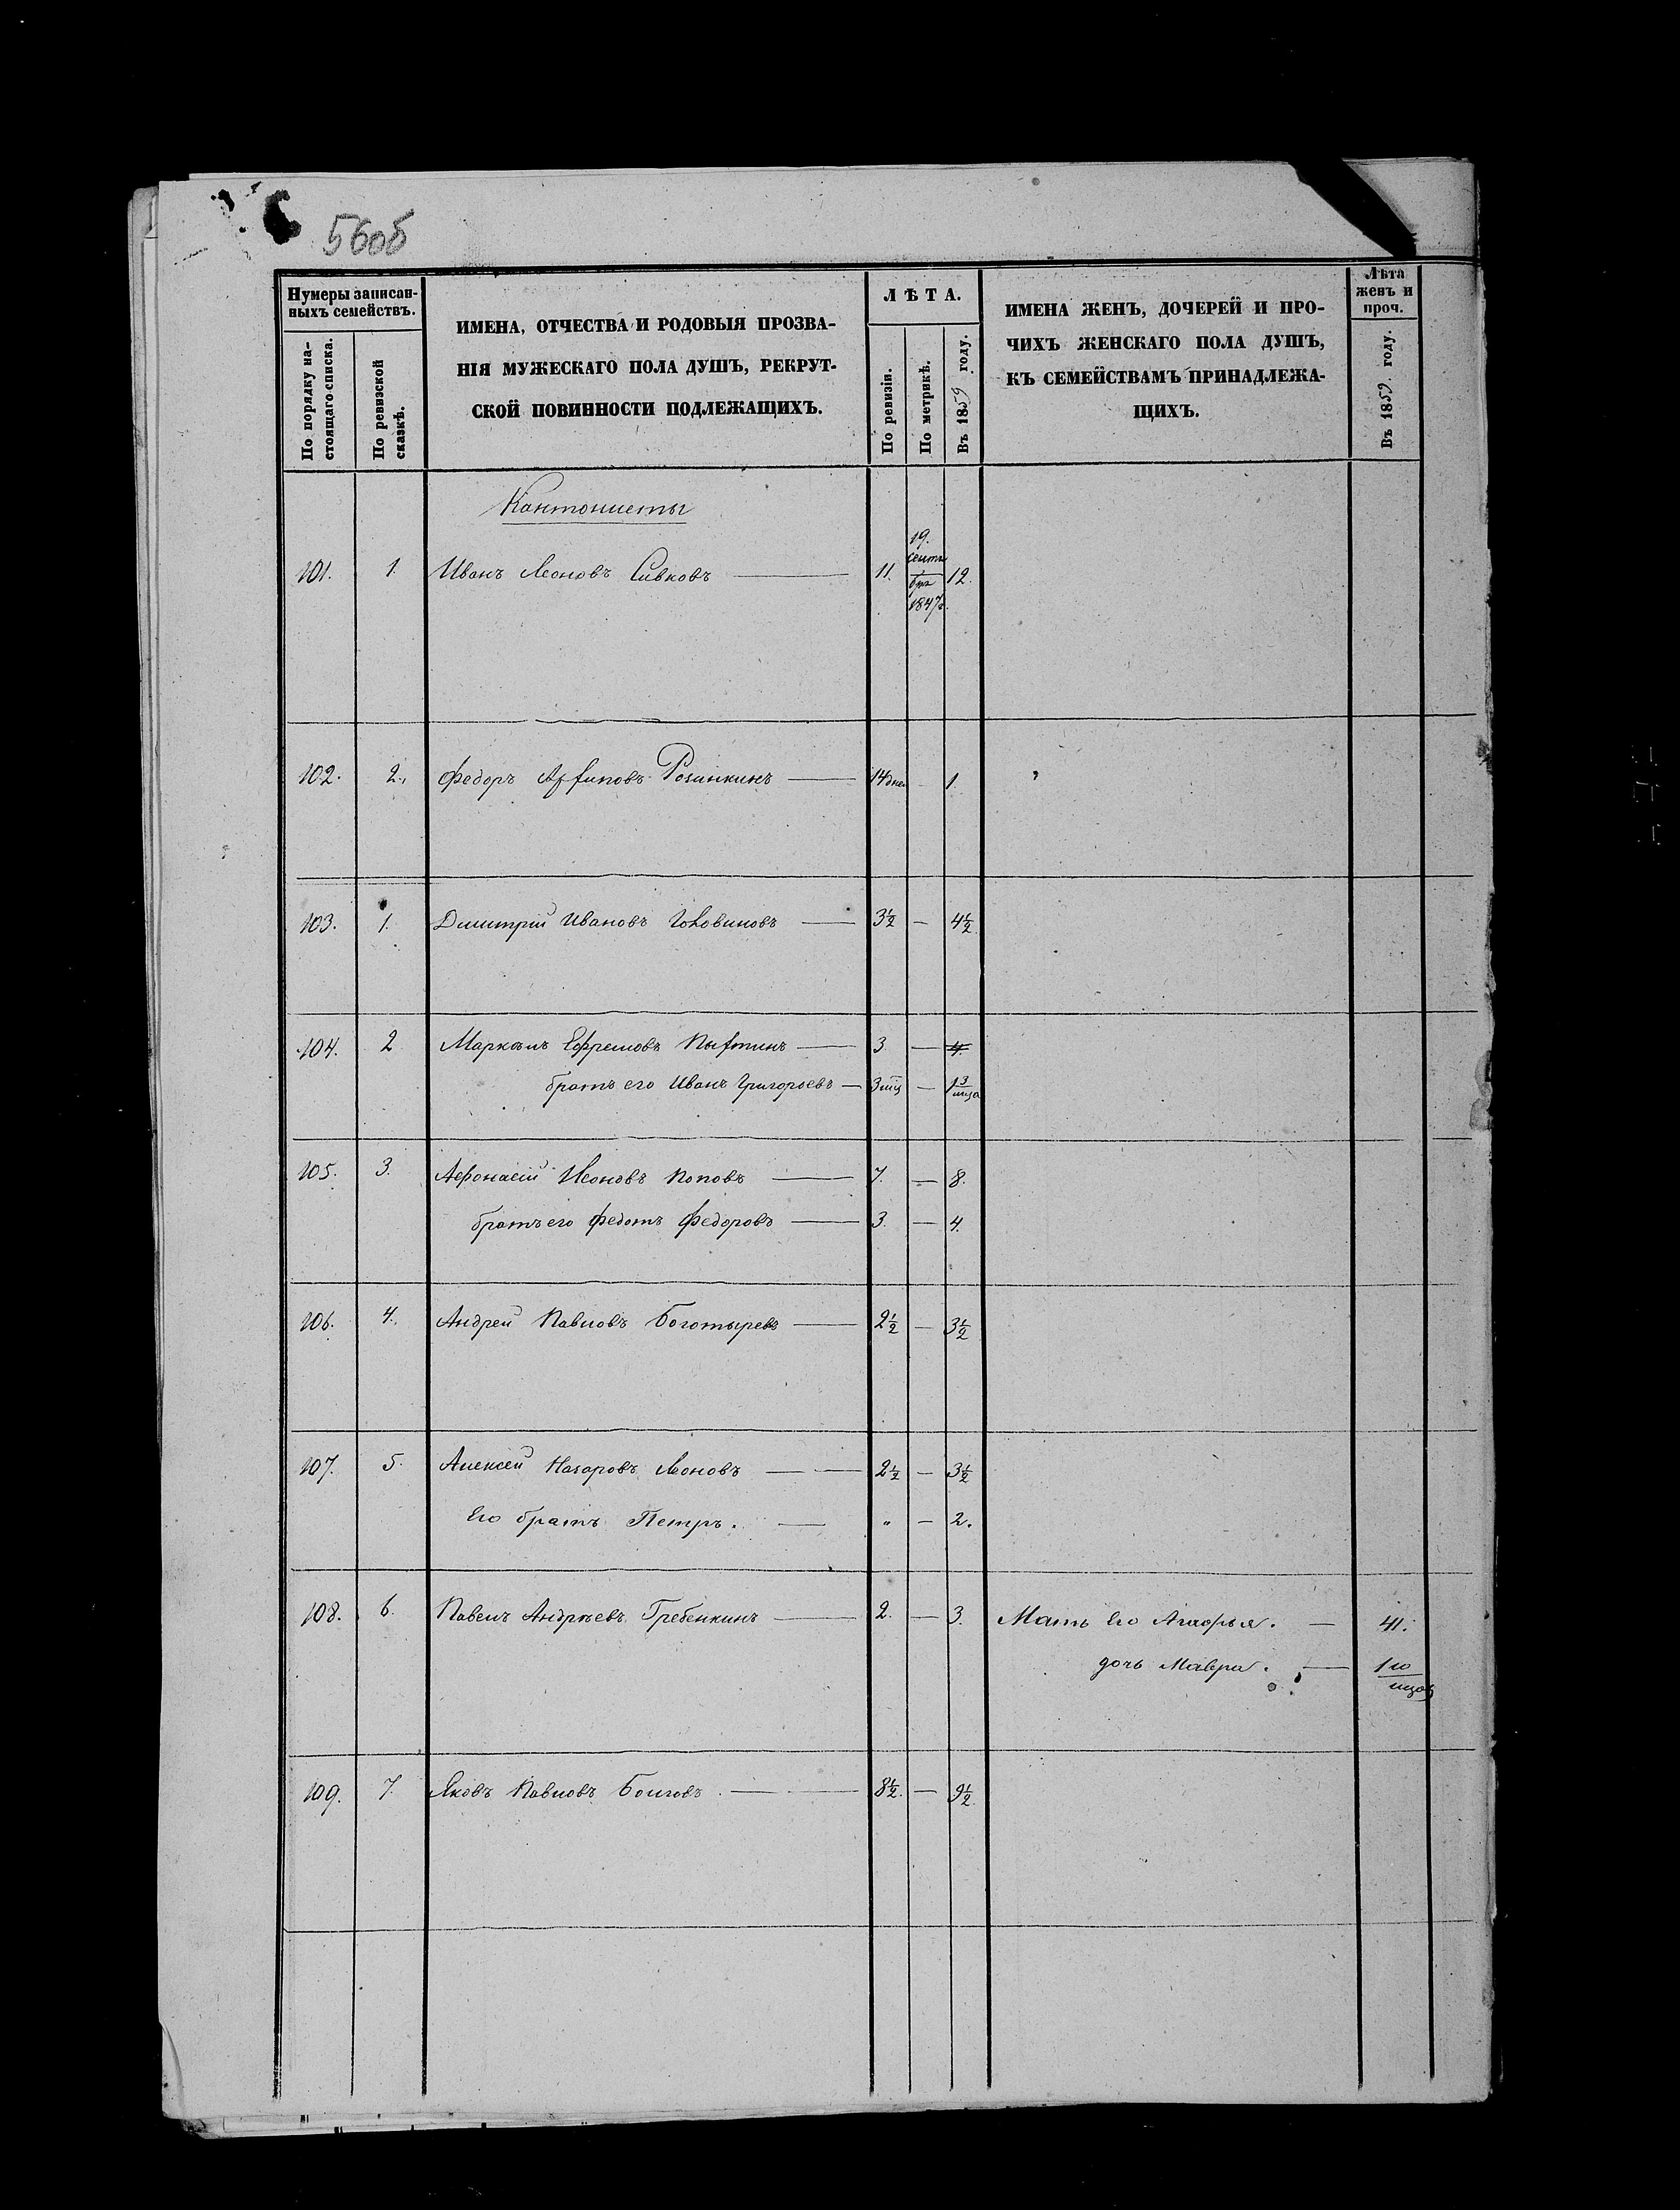 560б
Нумеры записан-
ныхъ семействъ.
По порядку на-
стоящаго списка.
По ревизской
сказкѣ.
ИМЕНА, ОТЧЕСТВА И РОДОВЫЯ ПРОЗВА-
НІЯ МУЖЕСКАГО ПОЛА ДУШЪ, РЕКРУТ-
СКОЙ ПОВИННОСТИ ПОДЛЕЖАЩИХЪ.
ЛѢТА.
По ревизіи.
По метрикѣ.
Въ 1859 году.
ИМЕНА ЖЕНЪ, ДОЧЕРЕЙ И ПРО-
ЧИХЪ ЖЕНСКАГО ПОЛА ДУШЪ,
КЪ СЕМЕЙСТВАМЪ ПРИНАДЛЕЖА-
ЩИХЪ.
Лѣта
женъ и
проч.
Въ 1859 году.
Кантонисты
101. 1. Иванъ Леоновъ Сивковъ — 11. 19. сентя бря 1847г. 12.
102. 2. Федоръ Розинкинъ — 14 дне — 1.
103. 1. Димитрій Ивановъ Головиновъ — 3½ — 4½
104. 2 Ефремовъ — 3 — 4.
братъ его Иванъ Григорьевъ — 3 мц — 1 3 мца
105. 3. Афонасій Леоновъ Поповъ — 7. — 8.
братъ его Федотъ Федоровъ — 3. — 4.
106. 4. Андрей Павловъ Боготыревъ — 2½ — 3½
107. 5. Алексей Назаровъ Леоновъ — 2½ — 3½
Его братъ Петръ. — " — 2.
108. 6. Павелъ Андреевъ Гребенкинъ — 2. — 3. Мать Его Агафья. — 41.
дочь Мавра. — 1 10 мцов
109. 7. Яковъ Павловъ — 8½ — 9½